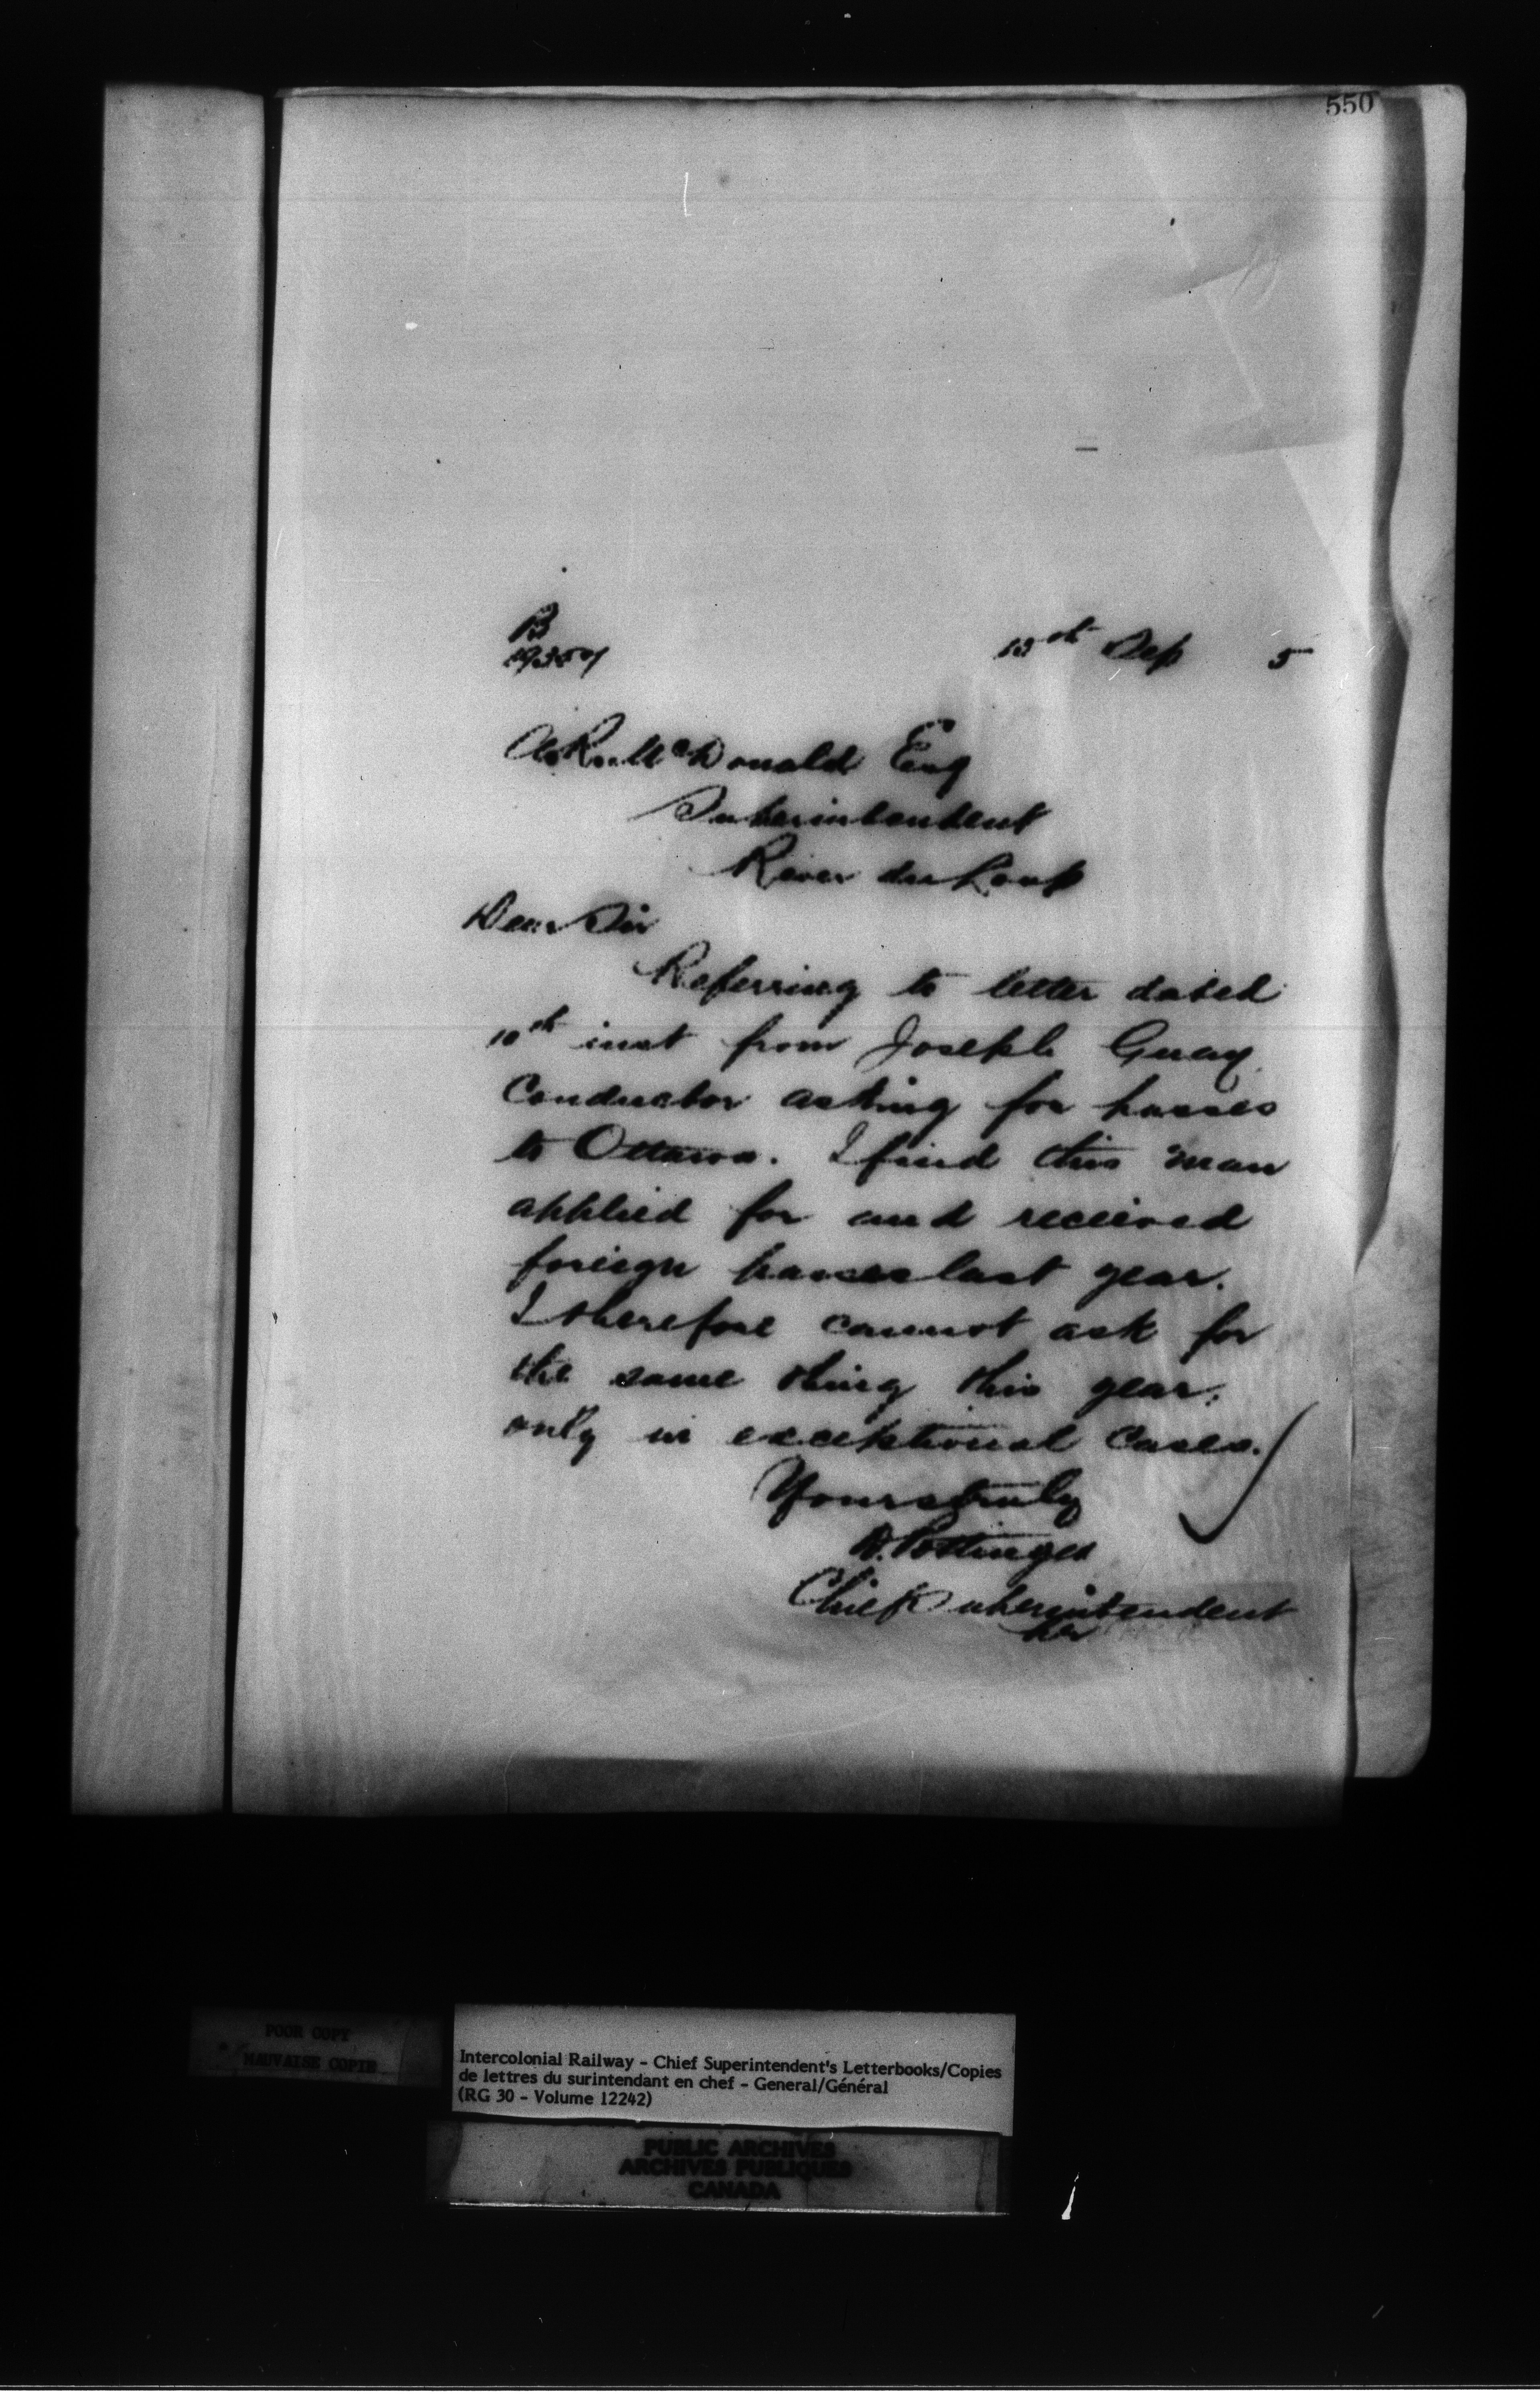 550
B
15th Sep 5
A. R. McDonald Esq
Superintendent
River du Loup
Dear Sir
Referring to letter dated
10th inst from Joseph Guay
Conductor asking for passes
to Ottawa. I find this man
applied for and received
foreign passes last year.
I therefore cannot ask for
the same thing this year,
only in exceptional cases.
Yours truly
D. Pottinger
Chief Superintendent
POOR COPY
MAUVAISE COPIE
Intercolonial Railway - Chief Superintendent's Letterbooks/Copies
de lettres du surintendant en chef - General/Général
(RG 30 - Volume 12242)
PUBLIC ARCHIVES
ARCHIVES PUBLIQUES
CANADA